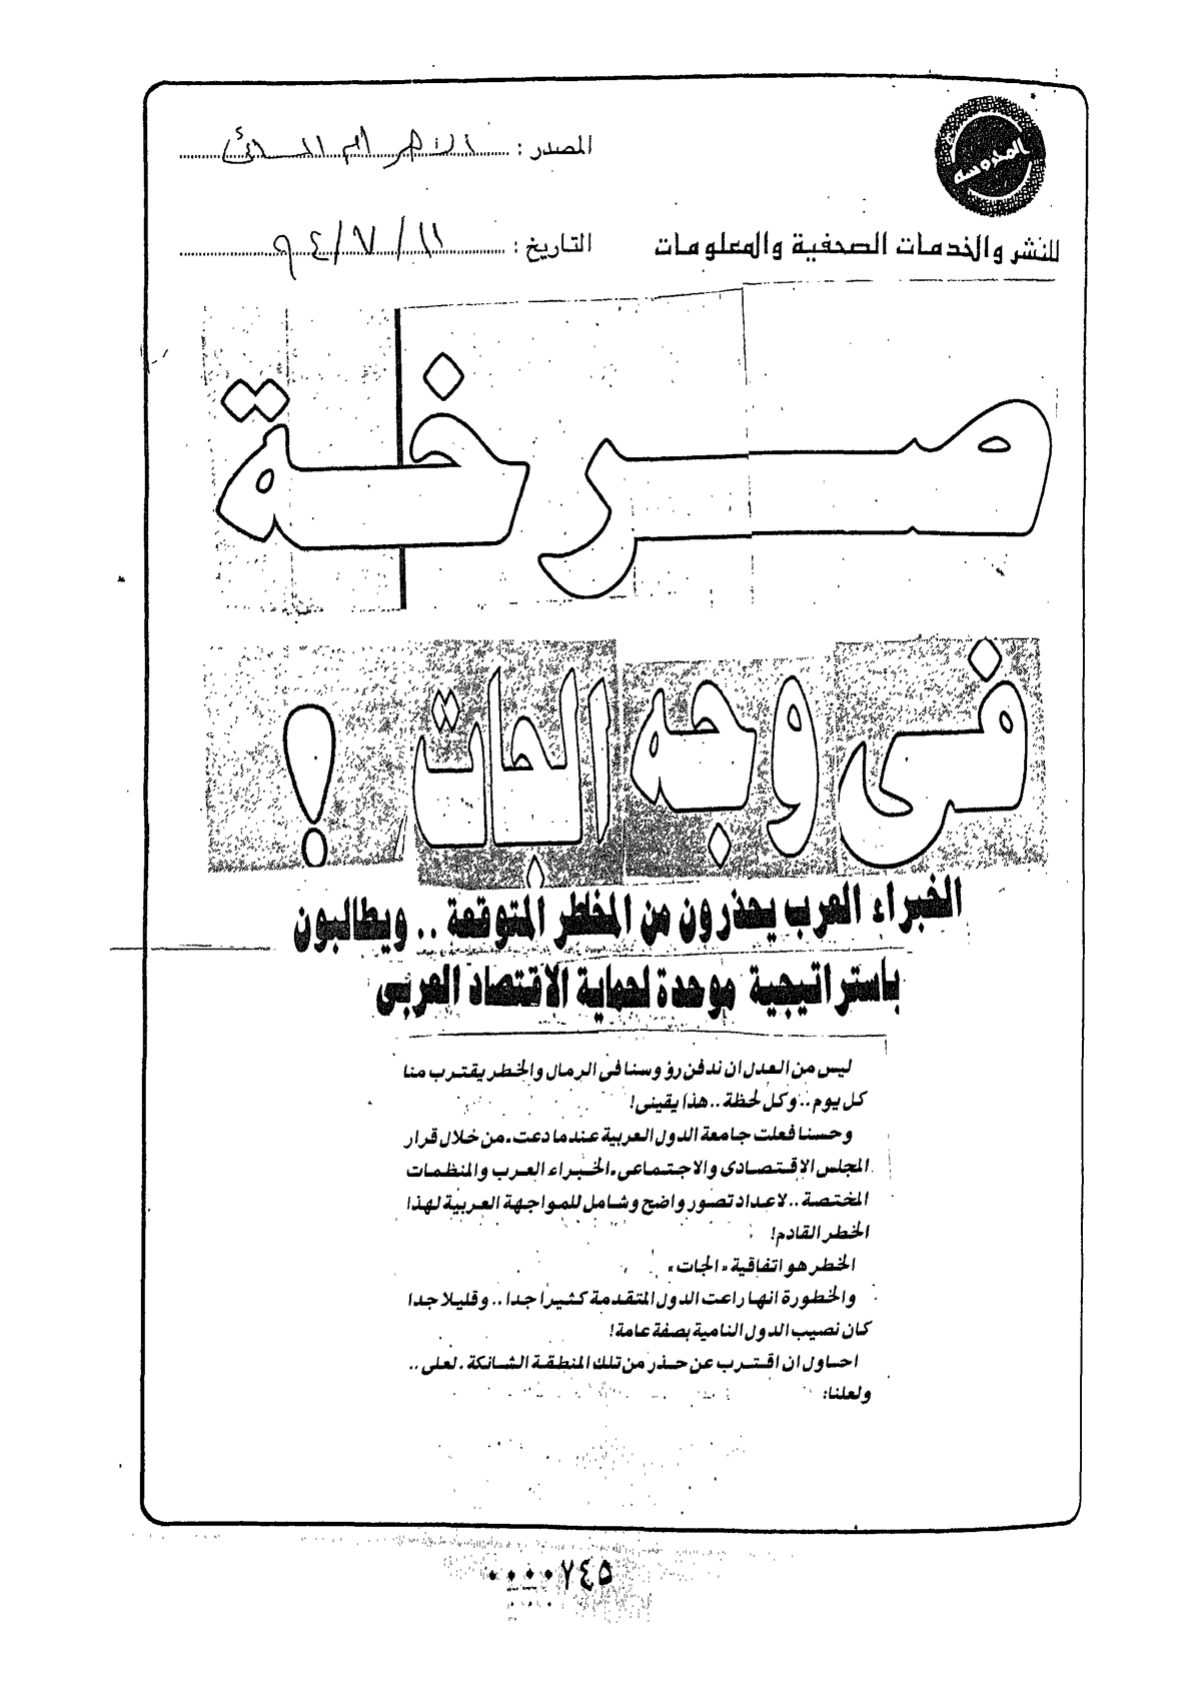 المدروسه
المصدر : الاهرام المسائى
للنشر والخدمات الصحفية والمعلومات
التاريخ : ١١/٧/٩٤
صرخة
فى وجه الجات !
الخبراء العرب يحذرون من المخاطر المتوقعة .. ويطالبون
باستراتيجية موحدة لحماية الاقتصاد العربى
ليس من العدل ان ندفن رؤوسنا فى الرمال والخطر يقترب منا
كل يوم .. وكل لحظة .. هذا يقينى!
وحسنا فعلت جامعة الدول العربية عندما دعت. من خلال قرار
المجلس الاقتصادى والاجتماعى. الخبراء العرب والمنظمات
المختصة .. لاعداد تصور واضح وشامل للمواجهة العربية لهذا
الخطر القادم!
الخطر هو اتفاقية «الجات»
والخطورة انها راعت الدول المتقدمة كثيرا جدا .. وقليلا جدا
كان نصيب الدول النامية بصفة عامة!
احاول ان اقترب عن حذر من تلك المنطقة الشائكة. لعلى ..
ولعلنا:
٠٠٠٠٧٤٥